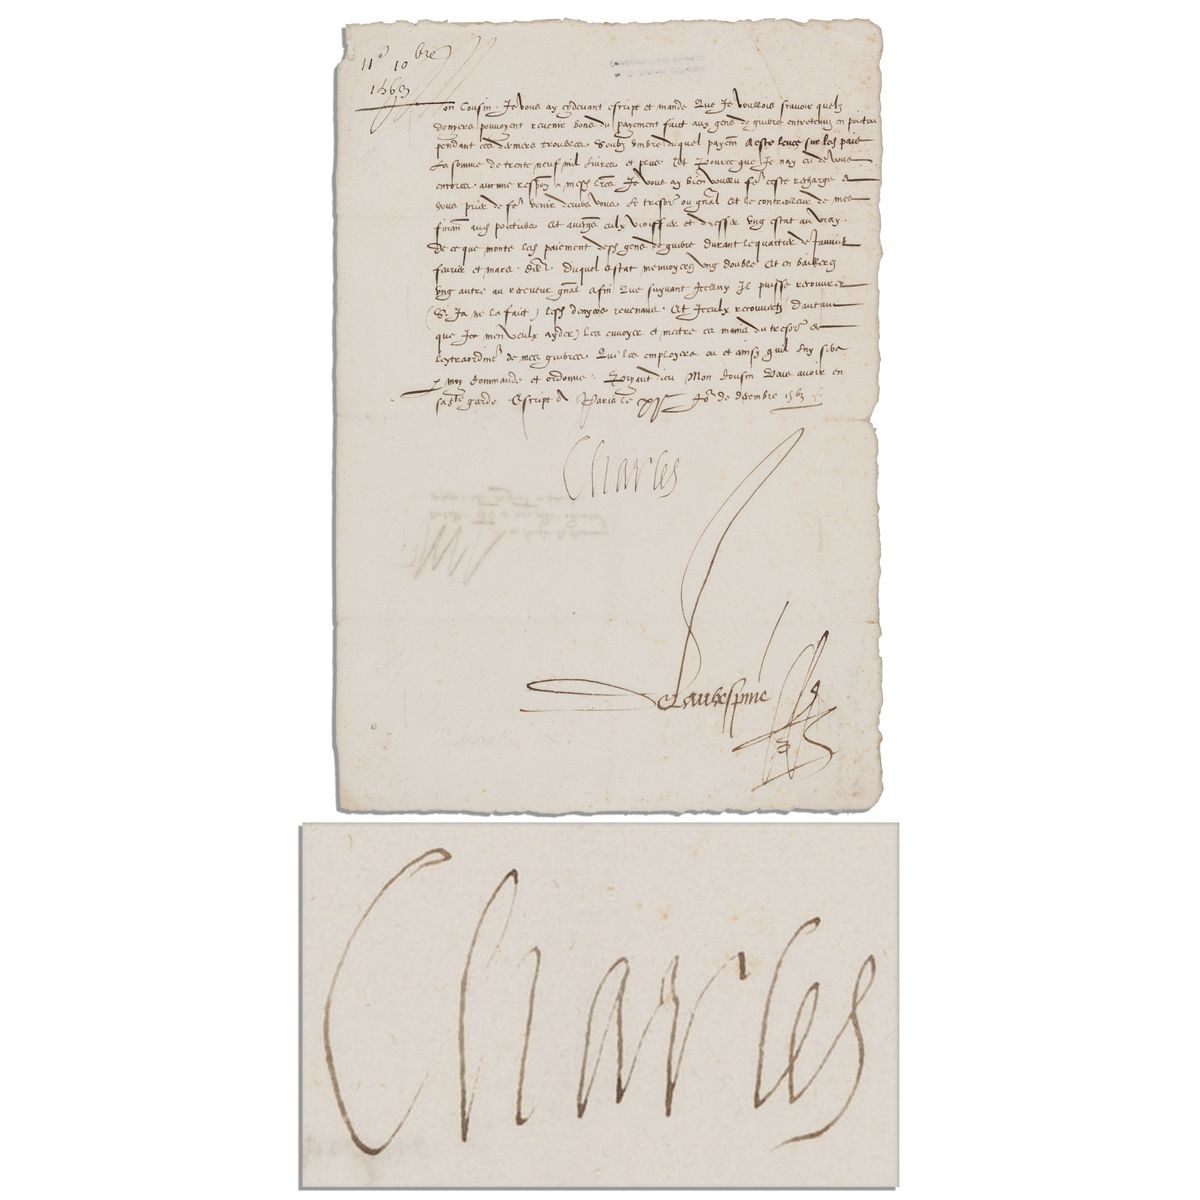 11e 10bre
1563
Mon Cousin. Je vous ay cydevant escript et mande que Je voullois scavoir quelz
deniers pouvoyent revenir bons du payement faict aux gens de guerre entretenuz en poictou
pendant ces derniers troubles Soubz umbre duquel payem a este leve sur les pais
La somme de trente neuf mil livres et plus Et Pource que Je nay eu de vous
encores aucune respon a mess lres Je vous ay bien voullu fe ceste recharge &
vous prier de fe venir devers vous le tresor ou gnal et le controlleur de mes
finan aud poictiers et avecqs eulx veriffier et dresser ung estat au vray
de ce que monte les paiement desd gens de guerre durant le quartier de Janvier
fevrier et mars der Duquel estat menvoyerez ung double et en baillerez
ung autre au receveur gnal afin que suyvant Icelluy Il puisse recouvrer
(Si Ja ne la faict) lesd deniers revenans Et Iceulx recouvertz dautant
que Jen men veulx ayder) les envoyer et mectre es mains du tresor de
lextraordine de mes guerres Qui les employera ou et ainsy quil luy sera
p moy Commande et ordonne. Pryant dieu Mon Cousin vous avoir en
sa ste garde Escript a Paris le xj Jor de decembre 1563
Charles
Delaubespine
Charles